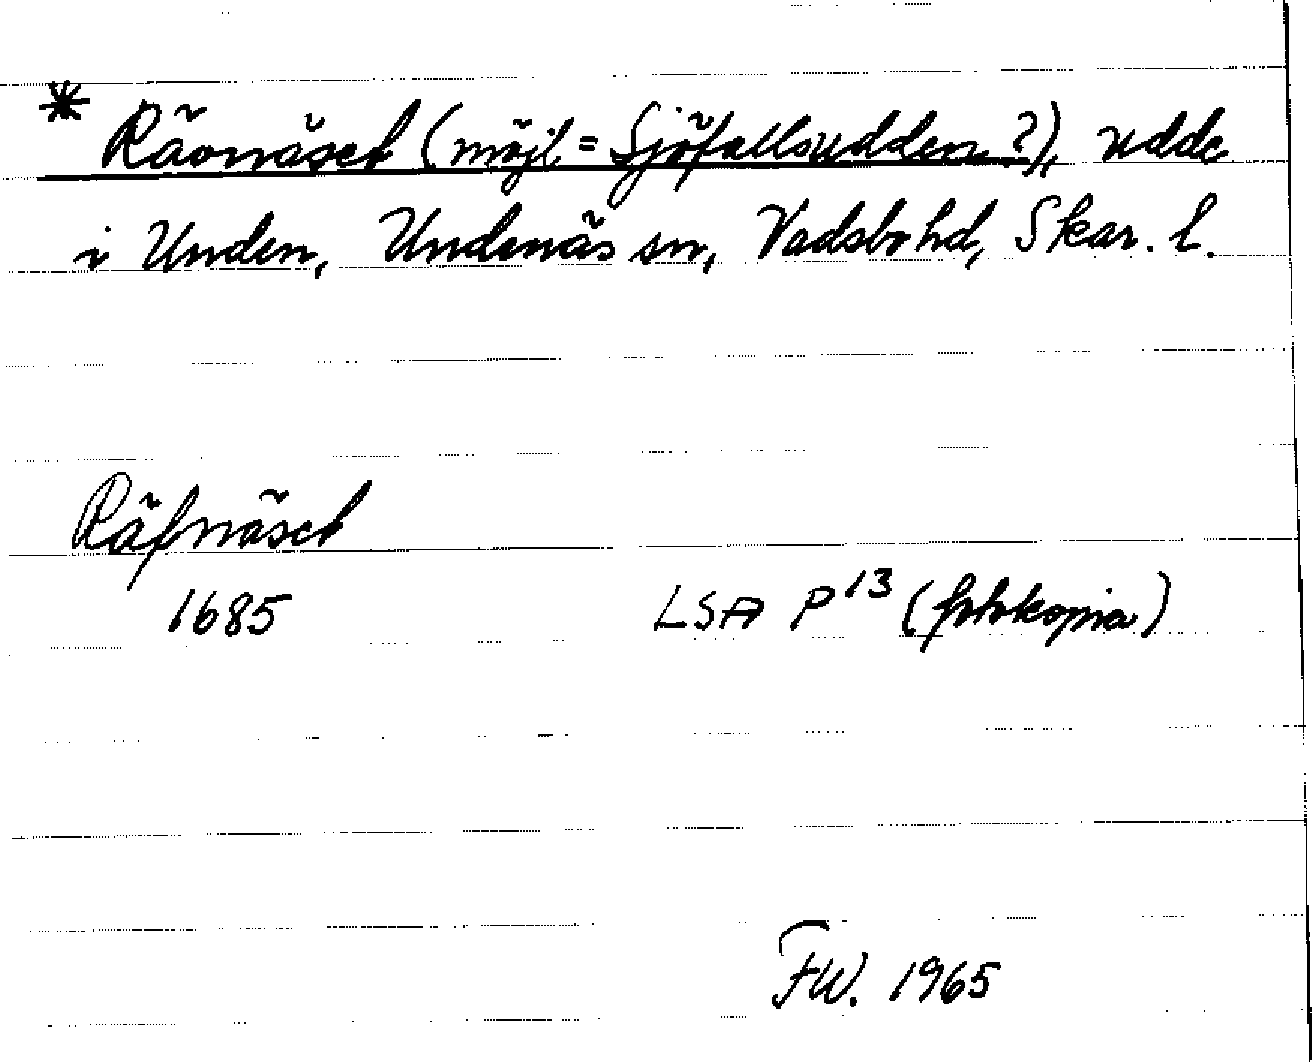 * Rävnäset (möjl = Sjöfallsudden?), udde
i Unden, Undenäs sn, Vadsbo hd, Skar. l.
Räfnäset
1685 LSA P 13 (fotokopia)
FW. 1965